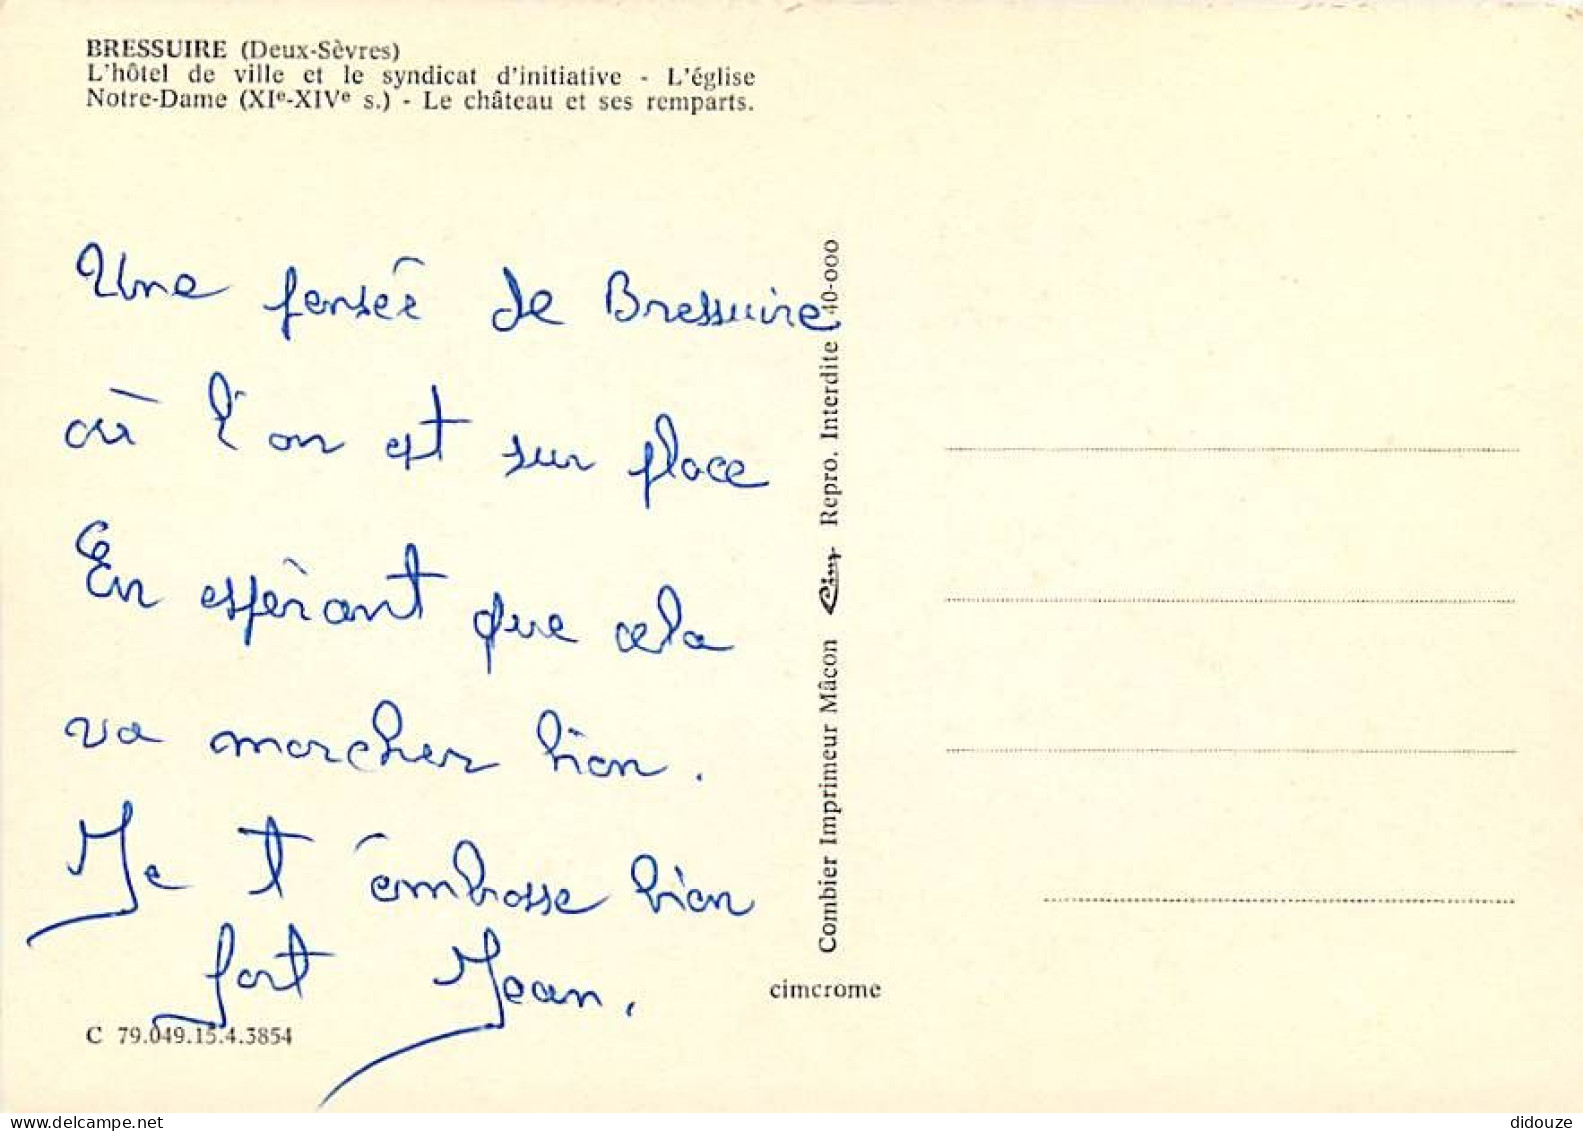 BRESSUIRE (Deux-Sèvres)
L'hôtel de ville et le syndicat d'initiative - L'église
Notre-Dame (XIe-XIVe s.) - Le château et ses remparts.
Une pensée de Bressuire
où l'on est sur place
En espérant que cela
va marcher bien.
Je t'embrasse bien
fort Jean.
C 79.049.15.4.3854
Combier Imprimeur Mâcon Cim Repro. Interdite 40-000
cimcrome
didouze